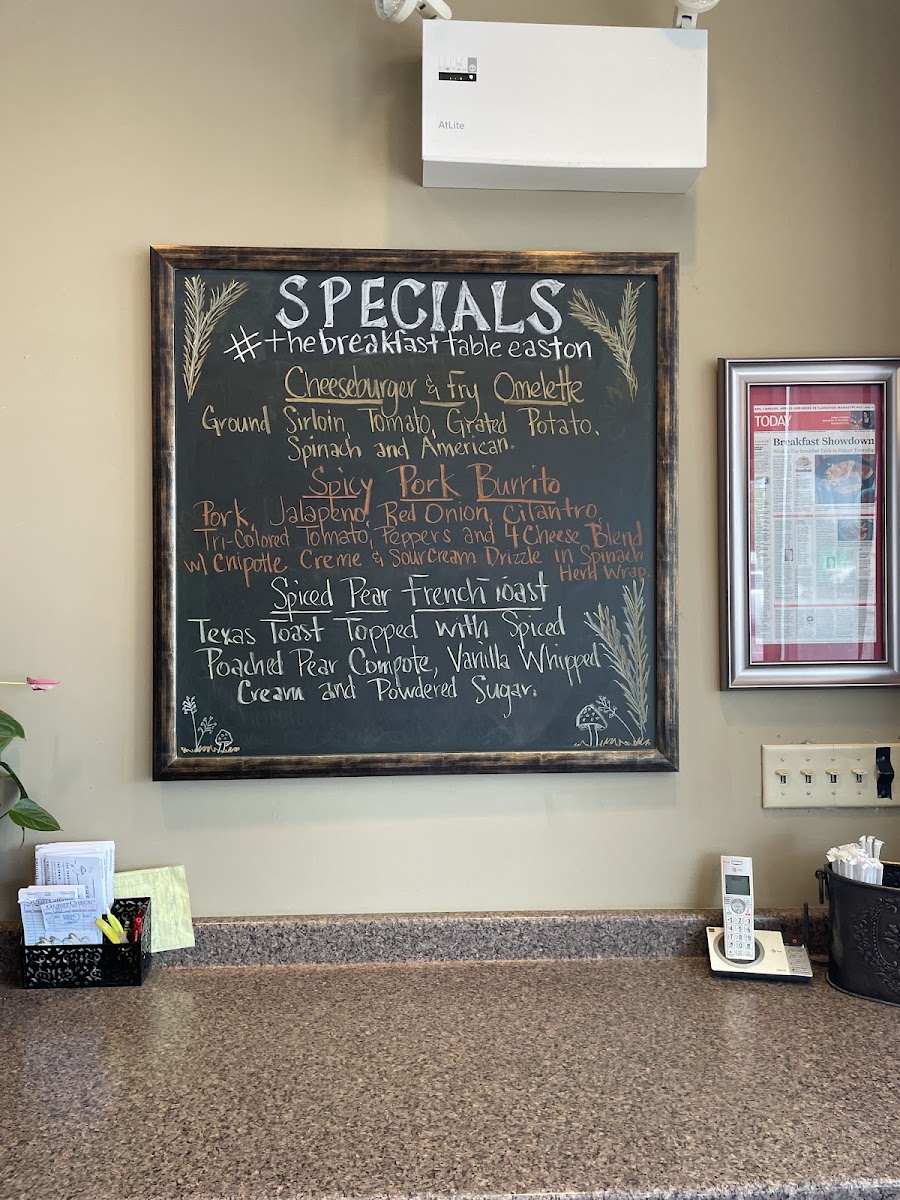 AtLite
SPECIALS
#thebreakfasttableeaston
Cheeseburger & Fry Omelette
Ground Sirloin, Tomato, Grated Potato,
Spinach and American.
Spicy Pork Burrito
Pork, Jalapeno, Red Onion, Cilantro,
Tri-Colored Tomato, Peppers and 4 Cheese Blend
w/ Chipotle Creme & Sour Cream Drizzle in Spinach
Herb Wrap.
Spiced Pear French Toast
Texas Toast Topped with Spiced
Poached Pear Compote, Vanilla Whipped
Cream and Powdered Sugar.
TODAY
Breakfast Showdown